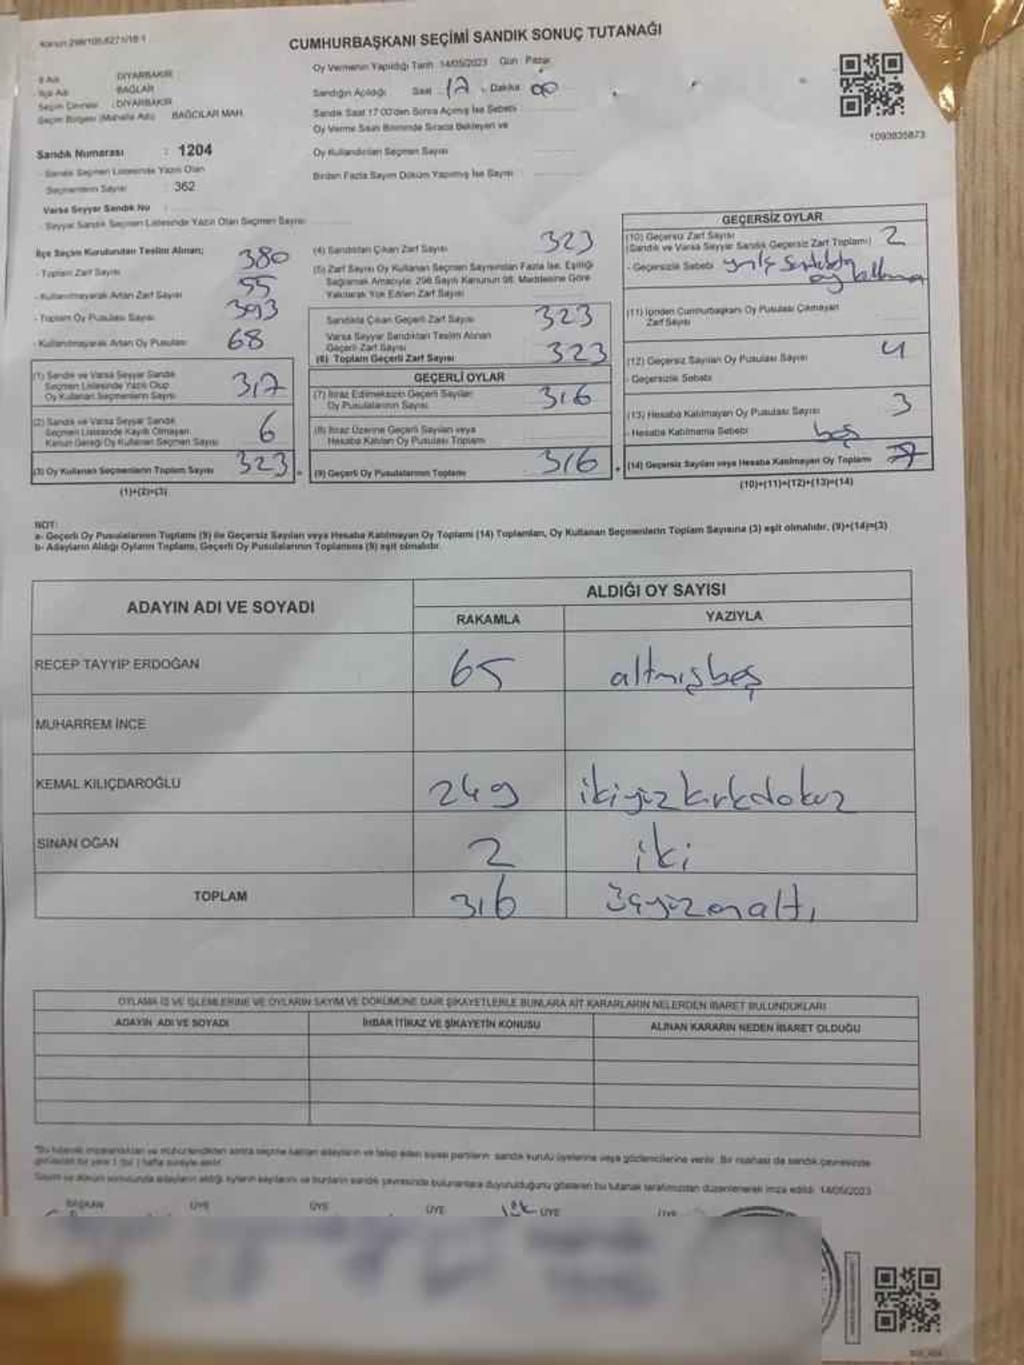 Kanun 298/105,6271/18-1
CUMHURBAŞKANI SEÇİMİ SANDIK SONUÇ TUTANAĞI
İl Adı : DİYARBAKIR
İlçe Adı : BAĞLAR
Seçim Çevresi : DİYARBAKIR
Seçim Bölgesi (Mahalle Adı) : BAĞCILAR MAH.
Oy Vermenin Yapıldığı Tarih :14/05/2023 Gün : Pazar
Sandığın Açıldığı Saat 17 , Dakika 00
Sandık Saat 17:00'den Sonra Açılmış İse Sebebi
Oy Verme Saati Bitiminde Sırada Bekleyen ve
Oy Kullandırılan Seçmen Sayısı
Birden Fazla Sayım Döküm Yapılmış İse Sayısı
1093835873
Sandık Numarası : 1204
Sandık Seçmen Listesinde Yazılı Olan
Seçmenlerin Sayısı : 362
Varsa Seyyar Sandık No :
Seyyar Sandık Seçmen Listesinde Yazılı Olan Seçmen Sayısı
İlçe Seçim Kurulundan Teslim Alınan;
- Toplam Zarf Sayısı 380
- Kullanılmayarak Artan Zarf Sayısı 55
- Toplam Oy Pusulası Sayısı
- Kullanılmayarak Artan Oy Pusulası 68
(1) Sandık ve Varsa Seyyar Sandık
Seçmen Listesinde Yazılı Olup
Oy Kullanan Seçmenlerin Sayısı 317
(2) Sandık ve Varsa Seyyar Sandık
Seçmen Listesinde Kayıtlı Olmayan
Kanun Gereği Oy Kullanan Seçmen Sayısı 6
(3) Oy Kullanan Seçmenlerin Toplam Sayısı 323
(1)+(2)=(3)
(4) Sandıktan Çıkan Zarf Sayısı 323
(5) Zarf Sayısı Oy Kullanan Seçmen Sayısından Fazla İse, Eşitliği
Sağlamak Amacıyla; 298 Sayılı Kanunun 98. Maddesine Göre
Yakılarak Yok Edilen Zarf Sayısı
Sandıkta Çıkan Geçerli Zarf Sayısı 323
Varsa Seyyar Sandıktan Teslim Alınan
Geçerli Zarf Sayısı
(6) Toplam Geçerli Zarf Sayısı 323
GEÇERLİ OYLAR
(7) İtiraz Edilmeksizin Geçerli Sayılan
Oy Pusulalarının Sayısı 316
(8) İtiraz Üzerine Geçerli Sayılan veya
Hesaba Katılan Oy Pusulası Toplamı
(9) Geçerli Oy Pusulalarının Toplamı 316
GEÇERSİZ OYLAR
(10) Geçersiz Zarf Sayısı
(Sandık ve Varsa Seyyar Sandık Geçersiz Zarf Toplamı) 2
- Geçersizlik Sebebi
(11) İçinden Cumhurbaşkanı Oy Pusulası Çıkmayan
Zarf Sayısı
(12) Geçersiz Sayılan Oy Pusulası Sayısı 4
- Geçersizlik Sebebi
(13) Hesaba Katılmayan Oy Pusulası Sayısı 3
- Hesaba Katılmama Sebebi boş
(14) Geçersiz Sayılan veya Hesaba Katılmayan Oy Toplamı 7
(10)+(11)+(12)+(13)=(14)
NOT:
a- Geçerli Oy Pusulalarının Toplamı (9) ile Geçersiz Sayılan veya Hesaba Katılmayan Oy Toplamı (14) Toplamları, Oy Kullanan Seçmenlerin Toplam Sayısına (3) eşit olmalıdır. (9)+(14)=(3)
b- Adayların Aldığı Oyların Toplamı, Geçerli Oy Pusulalarının Toplamına (9) eşit olmalıdır.
ADAYIN ADI VE SOYADI
ALDIĞI OY SAYISI
RAKAMLA YAZIYLA
RECEP TAYYİP ERDOĞAN 65 altmışbeş
MUHARREM İNCE
KEMAL KILIÇDAROĞLU 249 ikiyüzkırkdokuz
SİNAN OĞAN 2 iki
TOPLAM 316 üçyüzonaltı
OYLAMA İŞ VE İŞLEMLERİNE VE OYLARIN SAYIM VE DÖKÜMÜNE DAİR ŞİKAYETLERLE BUNLARA AİT KARARLARIN NELERDEN İBARET BULUNDUKLARI
ADAYIN ADI VE SOYADI İHBAR İTİRAZ VE ŞİKAYETİN KONUSU ALINAN KARARIN NEDEN İBARET OLDUĞU
*Bu tutanak imzalandıktan ve mühürlendikten sonra seçime katılan adayların ve talep eden siyasi partilerin sandık kurulu üyelerine veya gözlemcilerine verilir. Bir nüshası da sandık çevresinde
görülebilir bir yere 1 (bir) hafta süreyle asılır.
Sayım ve döküm sonucunda adayların aldığı oyların sayılarını ve bunların sandık çevresinde bulunanlara duyurulduğunu gösteren bu tutanak tarafımızdan düzenlenerek imza edildi. 14/05/2023
BAŞKAN ÜYE ÜYE ÜYE ÜYE ÜYE